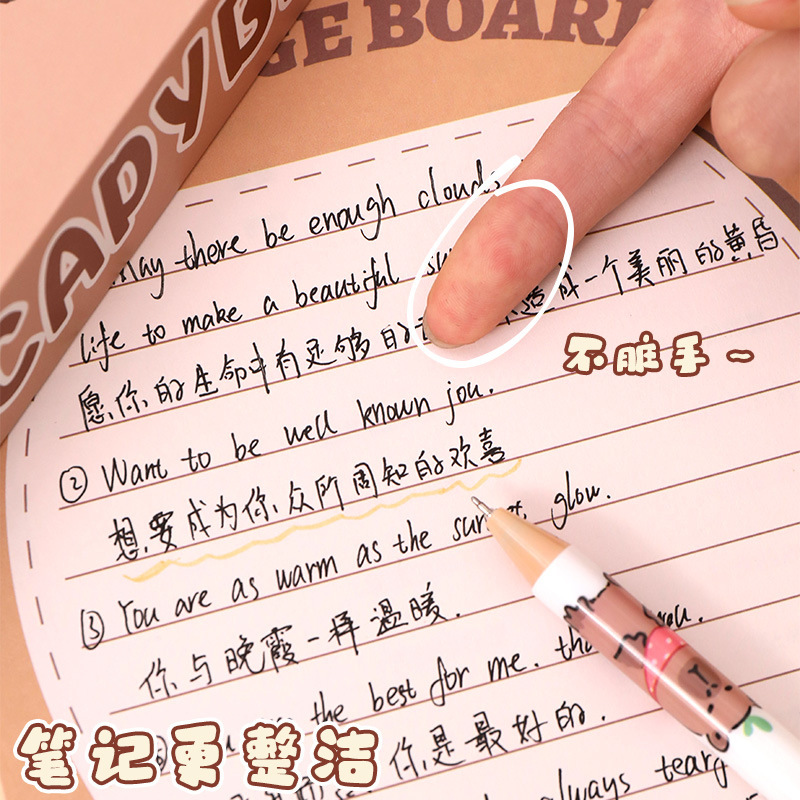 GE BOARD
CAPYB
may there be enough clouds
life to make a beautiful su
愿你的生命中有足够的 造成一个美丽的黄昏
不脏手~
② Want to be well known jou.
想要成为你众所周知的欢喜
③ You are as warm as the sunset glow.
你与晚霞一样温暖.
the best for me. 
你是最好的.
always
笔记更整洁